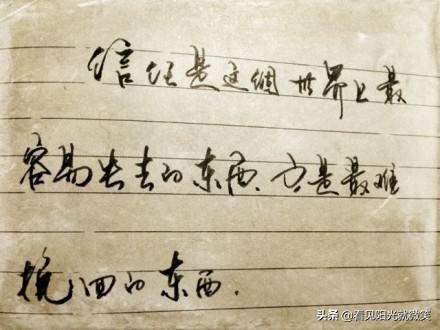 信任是这個世界上最
容易失去的东西、亦是最难
挽回的东西.
头条 @看见阳光就微笑